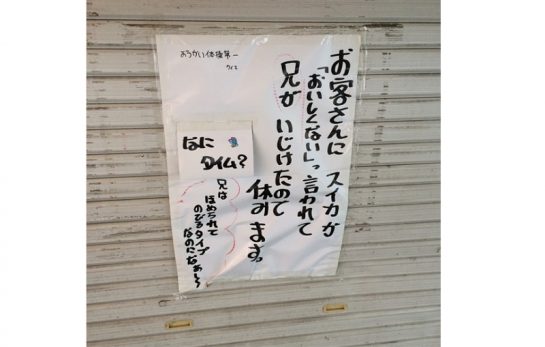 お客さんに スイカが
「おいしくない」って言われて
兄が いじけたので
休みます。
なに
タイム?
兄は
ほめられて
のびるタイプ
なのになぁ〜